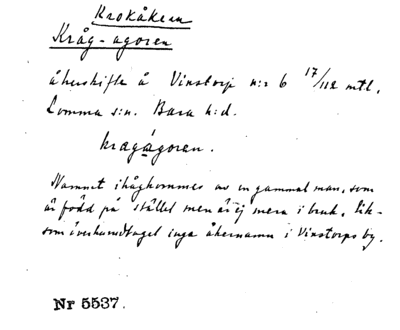 Krokåkern
Kråg-agoren
åkerskifte å Vinstorp n:r 6 17/112 mtl,
Lomma s:n. Bara h:d.
kragågoren.
Namnet ihågkommes av en gammal man, som
är född på stället men är ej mera i bruk, lik-
som överhuvudtaget inga åkernamn i Vinstorps by.
Nr 5537.